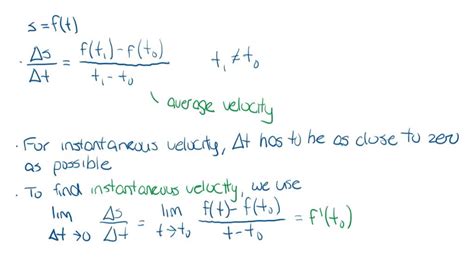 s=f(t)
· Δs/Δt = f(t₁)-f(t₀)/t₁-t₀ t₁≠t₀
average velocity
· For instantaneous velocity, Δt has to be as close to zero
as possible
· To find instantaneous velocity, we use
lim Δt→0 Δs/Δt = lim t→t₀ f(t)-f(t₀)/t-t₀ = f'(t₀)